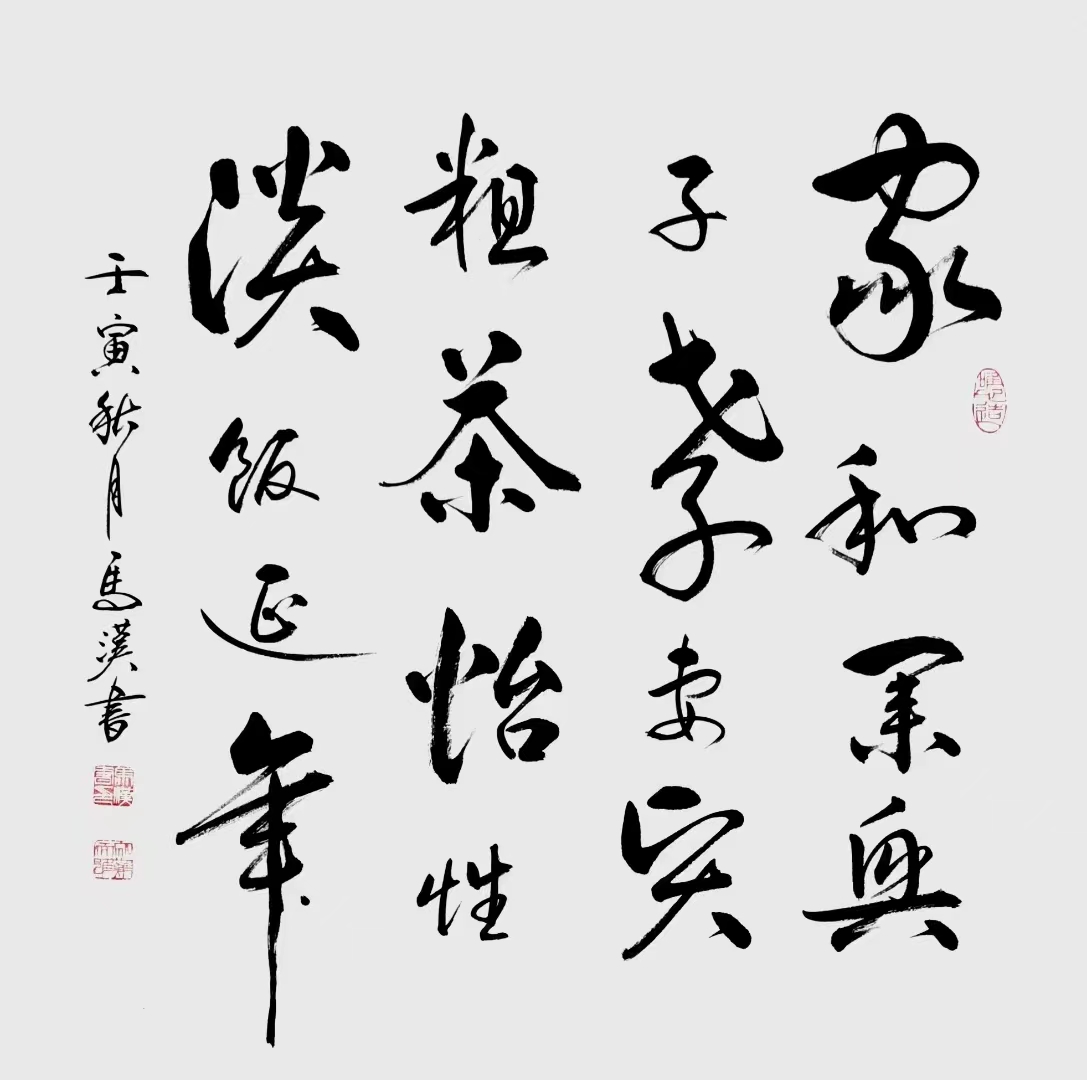 家和業興
子孝妻賢
粗茶怡性
淡飯延年
壬寅秋月馬漢書